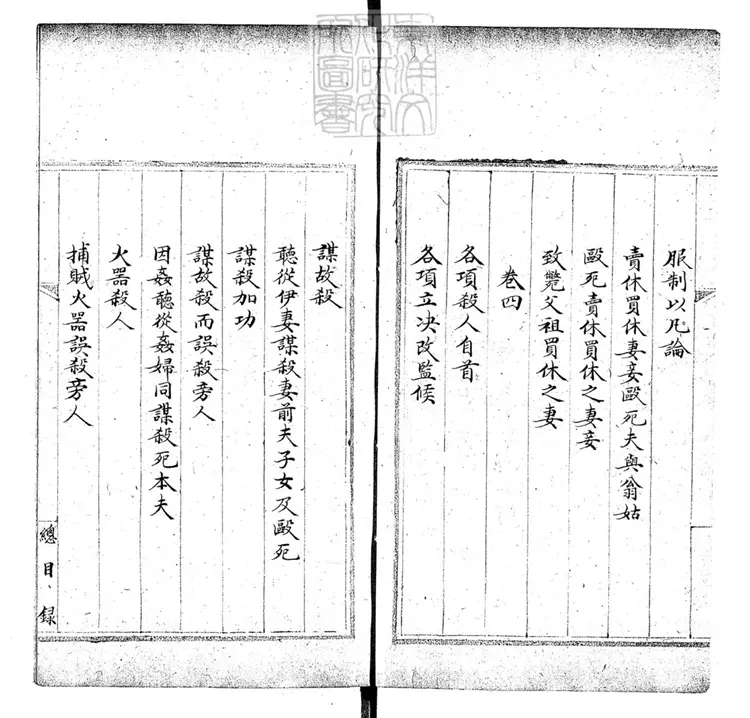 服制以凡論
賣休買休妻妾毆死夫與翁姑
毆死賣休買休之妻妾
致斃父祖買休之妻
卷四
各項殺人自首
各項立决改監候
謀故殺
聽從伊妻謀殺妻前夫子女及毆死
謀殺加功
謀故殺而誤殺旁人
因姦聽從姦婦同謀殺死本夫
火器殺人
捕賊火器誤殺旁人
總目録